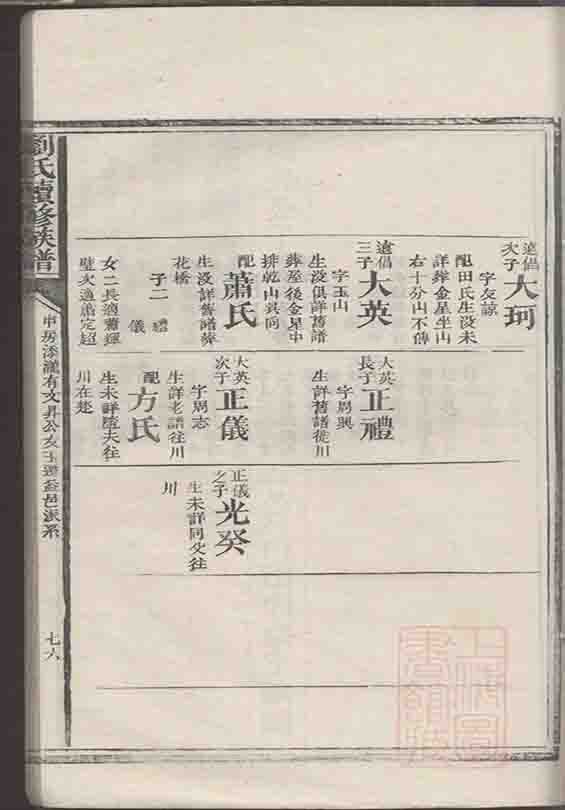 遠倡
次子
大珂
字友諒
配田氏生没未
詳葬金星坐山
右十分山不傳
遠倡
三子
大英
字玉山
生没俱詳舊譜
葬屋後金星中
排乾山巽向
配
蕭氏
生没詳舊譜葬
花橋
子二 禮
儀
女二長適蕭
璧次適蕭定超
大英
長子
正禮
字周興
生詳舊譜徙川
大英
次子
正儀
字周志
生詳老譜往川
配
方氏
生未詳隨夫往
川在楚
正儀
之子
光癸
生未詳同父往
川
劉氏續修族譜
申房添讖有文昇公友益邑派系
七六
上海圖
書館藏